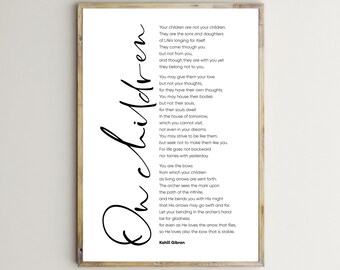 On children
Your children are not your children.
They are the sons and daughters
of Life's longing for itself.
They come through you
but not from you,
and though they are with you yet
they belong not to you.
You may give them your love
but not your thoughts,
for they have their own thoughts.
You may house their bodies
but not their souls,
for their souls dwell
in the house of tomorrow,
which you cannot visit,
not even in your dreams.
You may strive to be like them,
but seek not to make them like you.
For life goes not backward
nor tarries with yesterday.
You are the bows
from which your children
as living arrows are sent forth.
The archer sees the mark upon
the path of the infinite,
and He bends you with His might
that His arrows may go swift and far.
Let your bending in the archer's hand
be for gladness;
for even as He loves the arrow that flies,
so He loves also the bow that is stable.
Kahlil Gibran